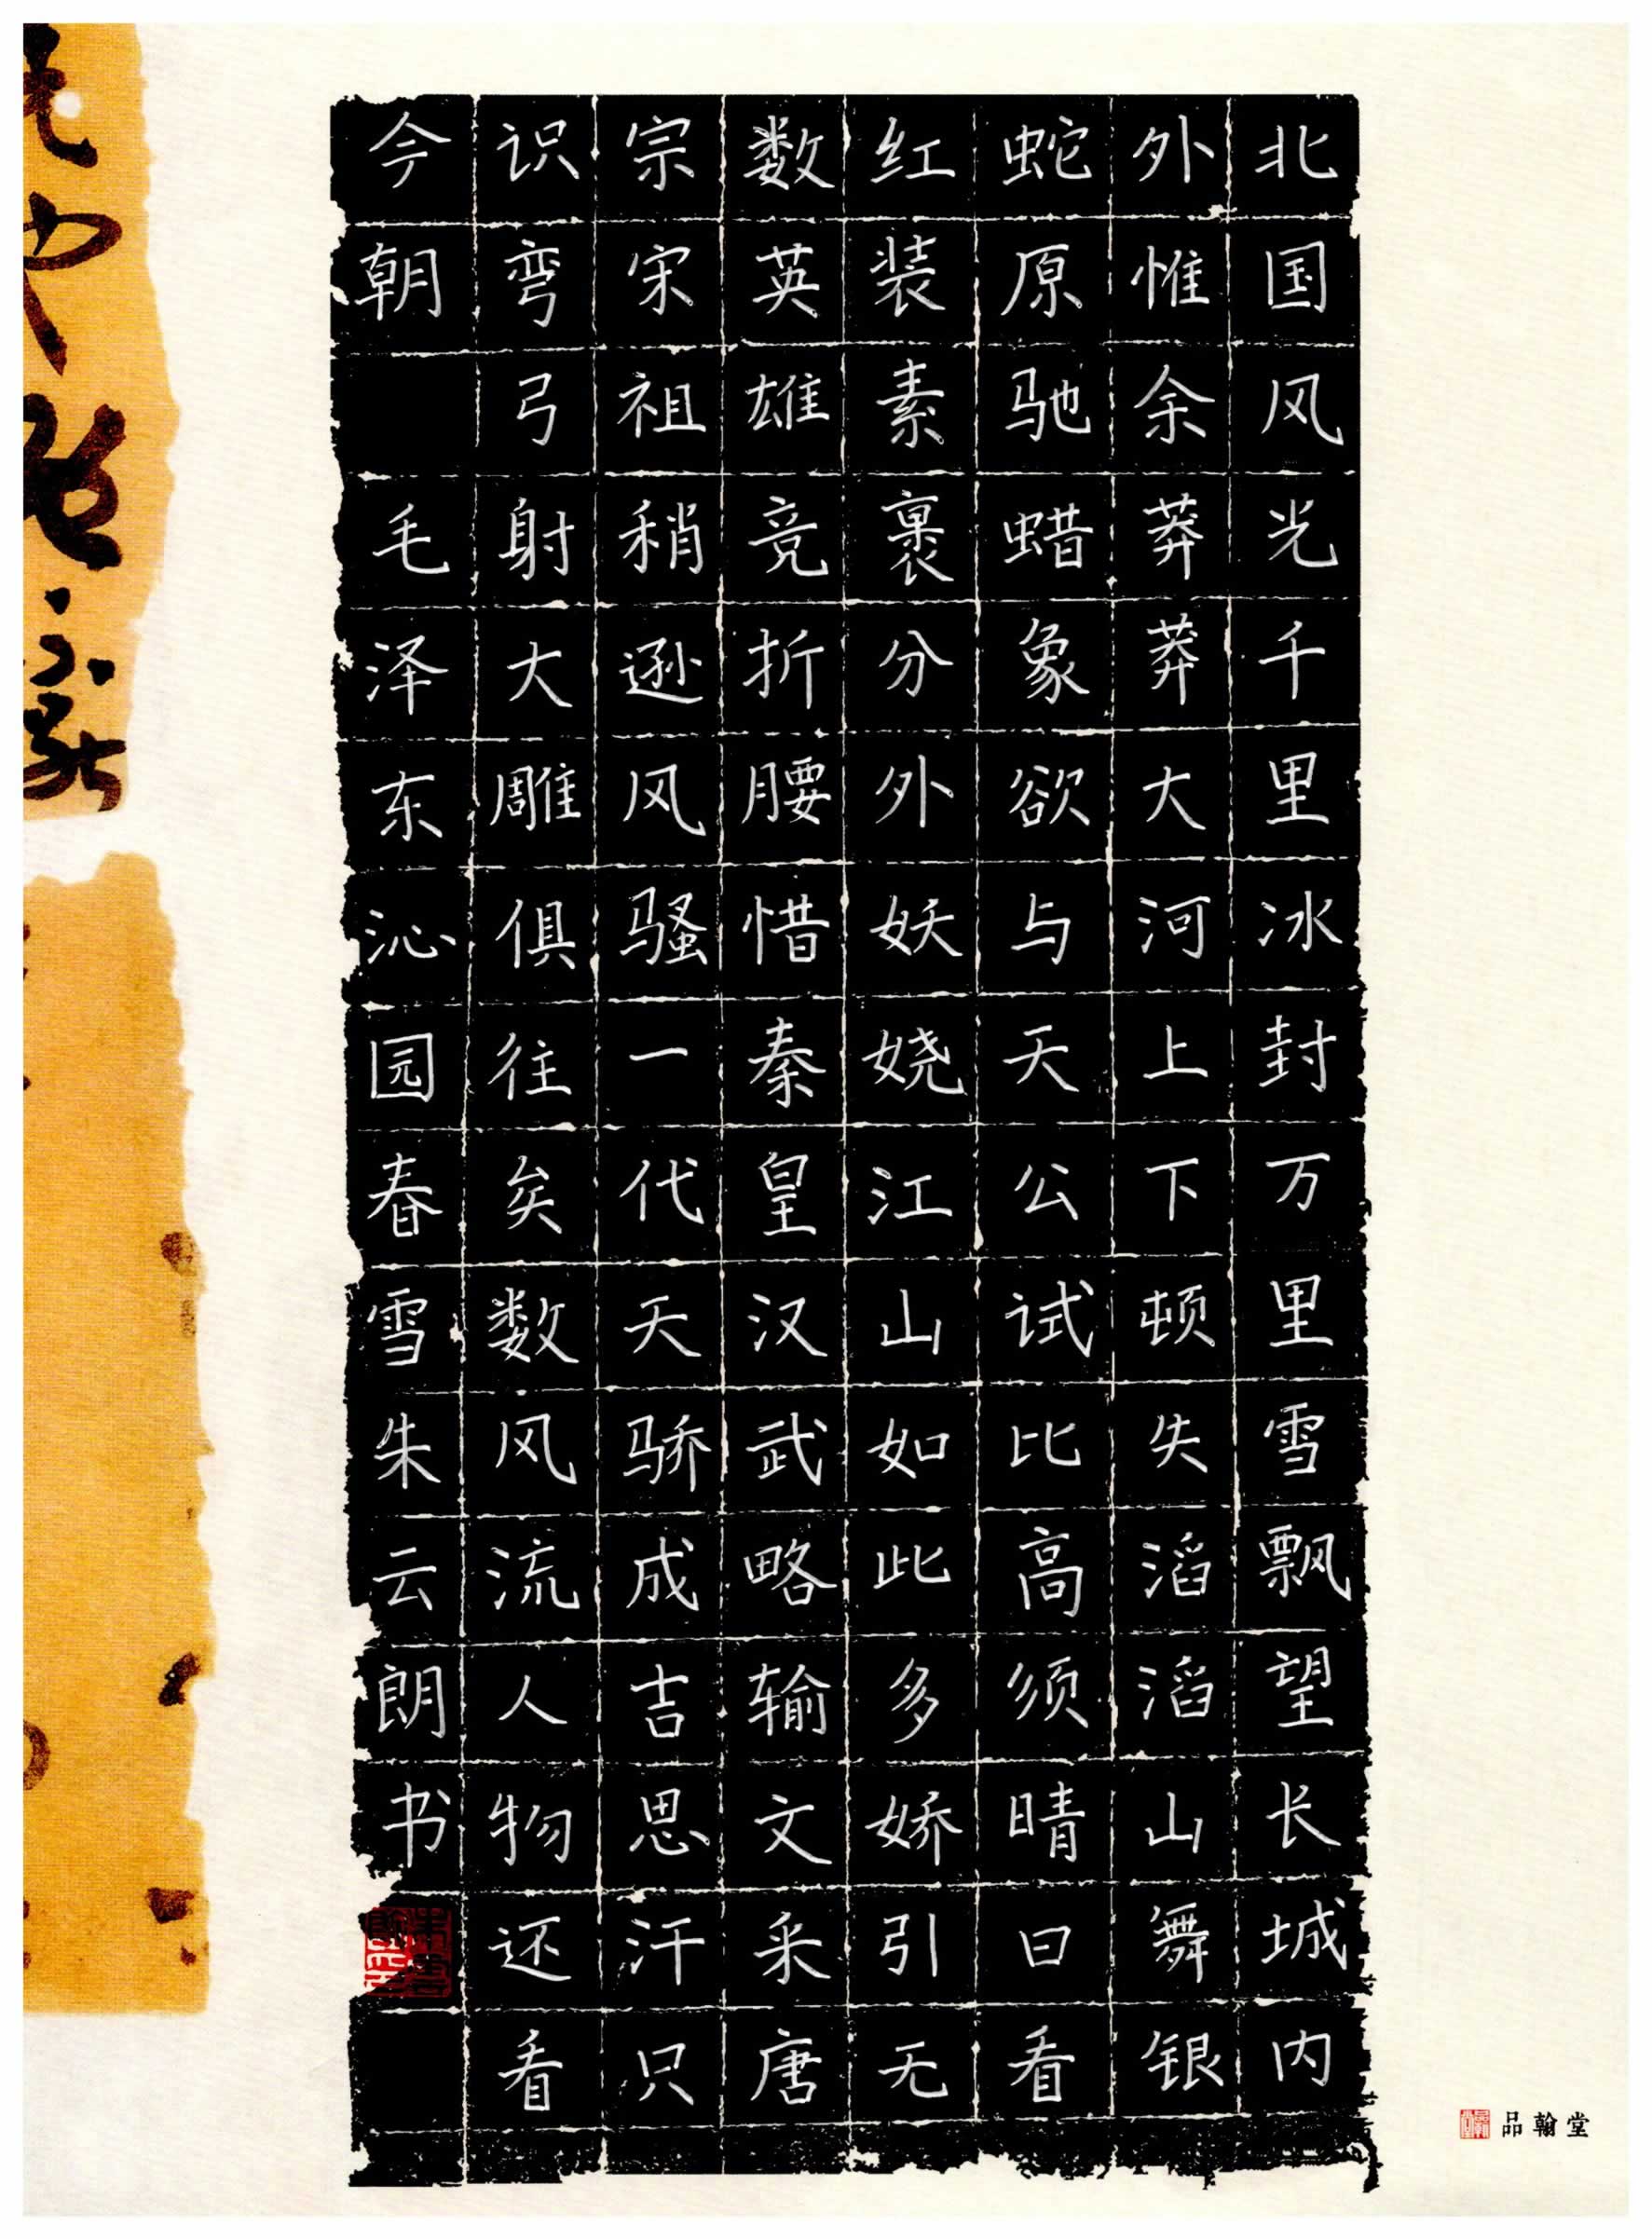 北国风光千里冰封万里雪飘望长城内
外惟余莽莽大河上下顿失滔滔山舞银
蛇原驰蜡象欲与天公试比高须晴日看
红装素裹分外妖娆江山如此多娇引无
数英雄竞折腰惜秦皇汉武略输文采唐
宗宋祖稍逊风骚一代天骄成吉思汗只
识弯弓射大雕俱往矣数风流人物还看
今朝 毛泽东沁园春雪朱云朗书
品翰堂